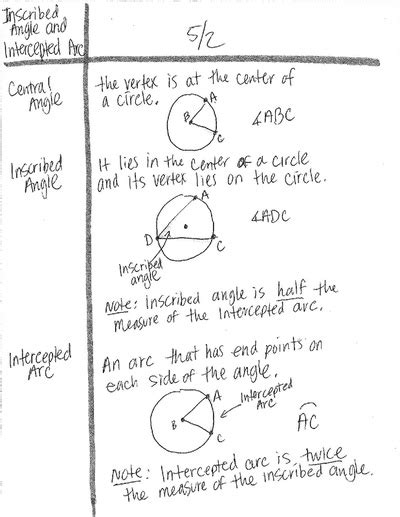 Inscribed
Angle and
Intercepted Arc
5/2
Central
Angle
the vertex is at the center of
a circle.
A
B
C
∡ABC
Inscribed
Angle
It lies in the center of a circle
and its vertex lies on the circle.
A
D
C
∡ADC
Inscribed
angle
Note: Inscribed angle is half the
measure of the Intercepted arc.
Intercepted
Arc
An arc that has end points on
each side of the angle.
A
B
C
Intercepted
Arc
AC
Note: Intercepted arc is twice
the measure of the inscribed angle.